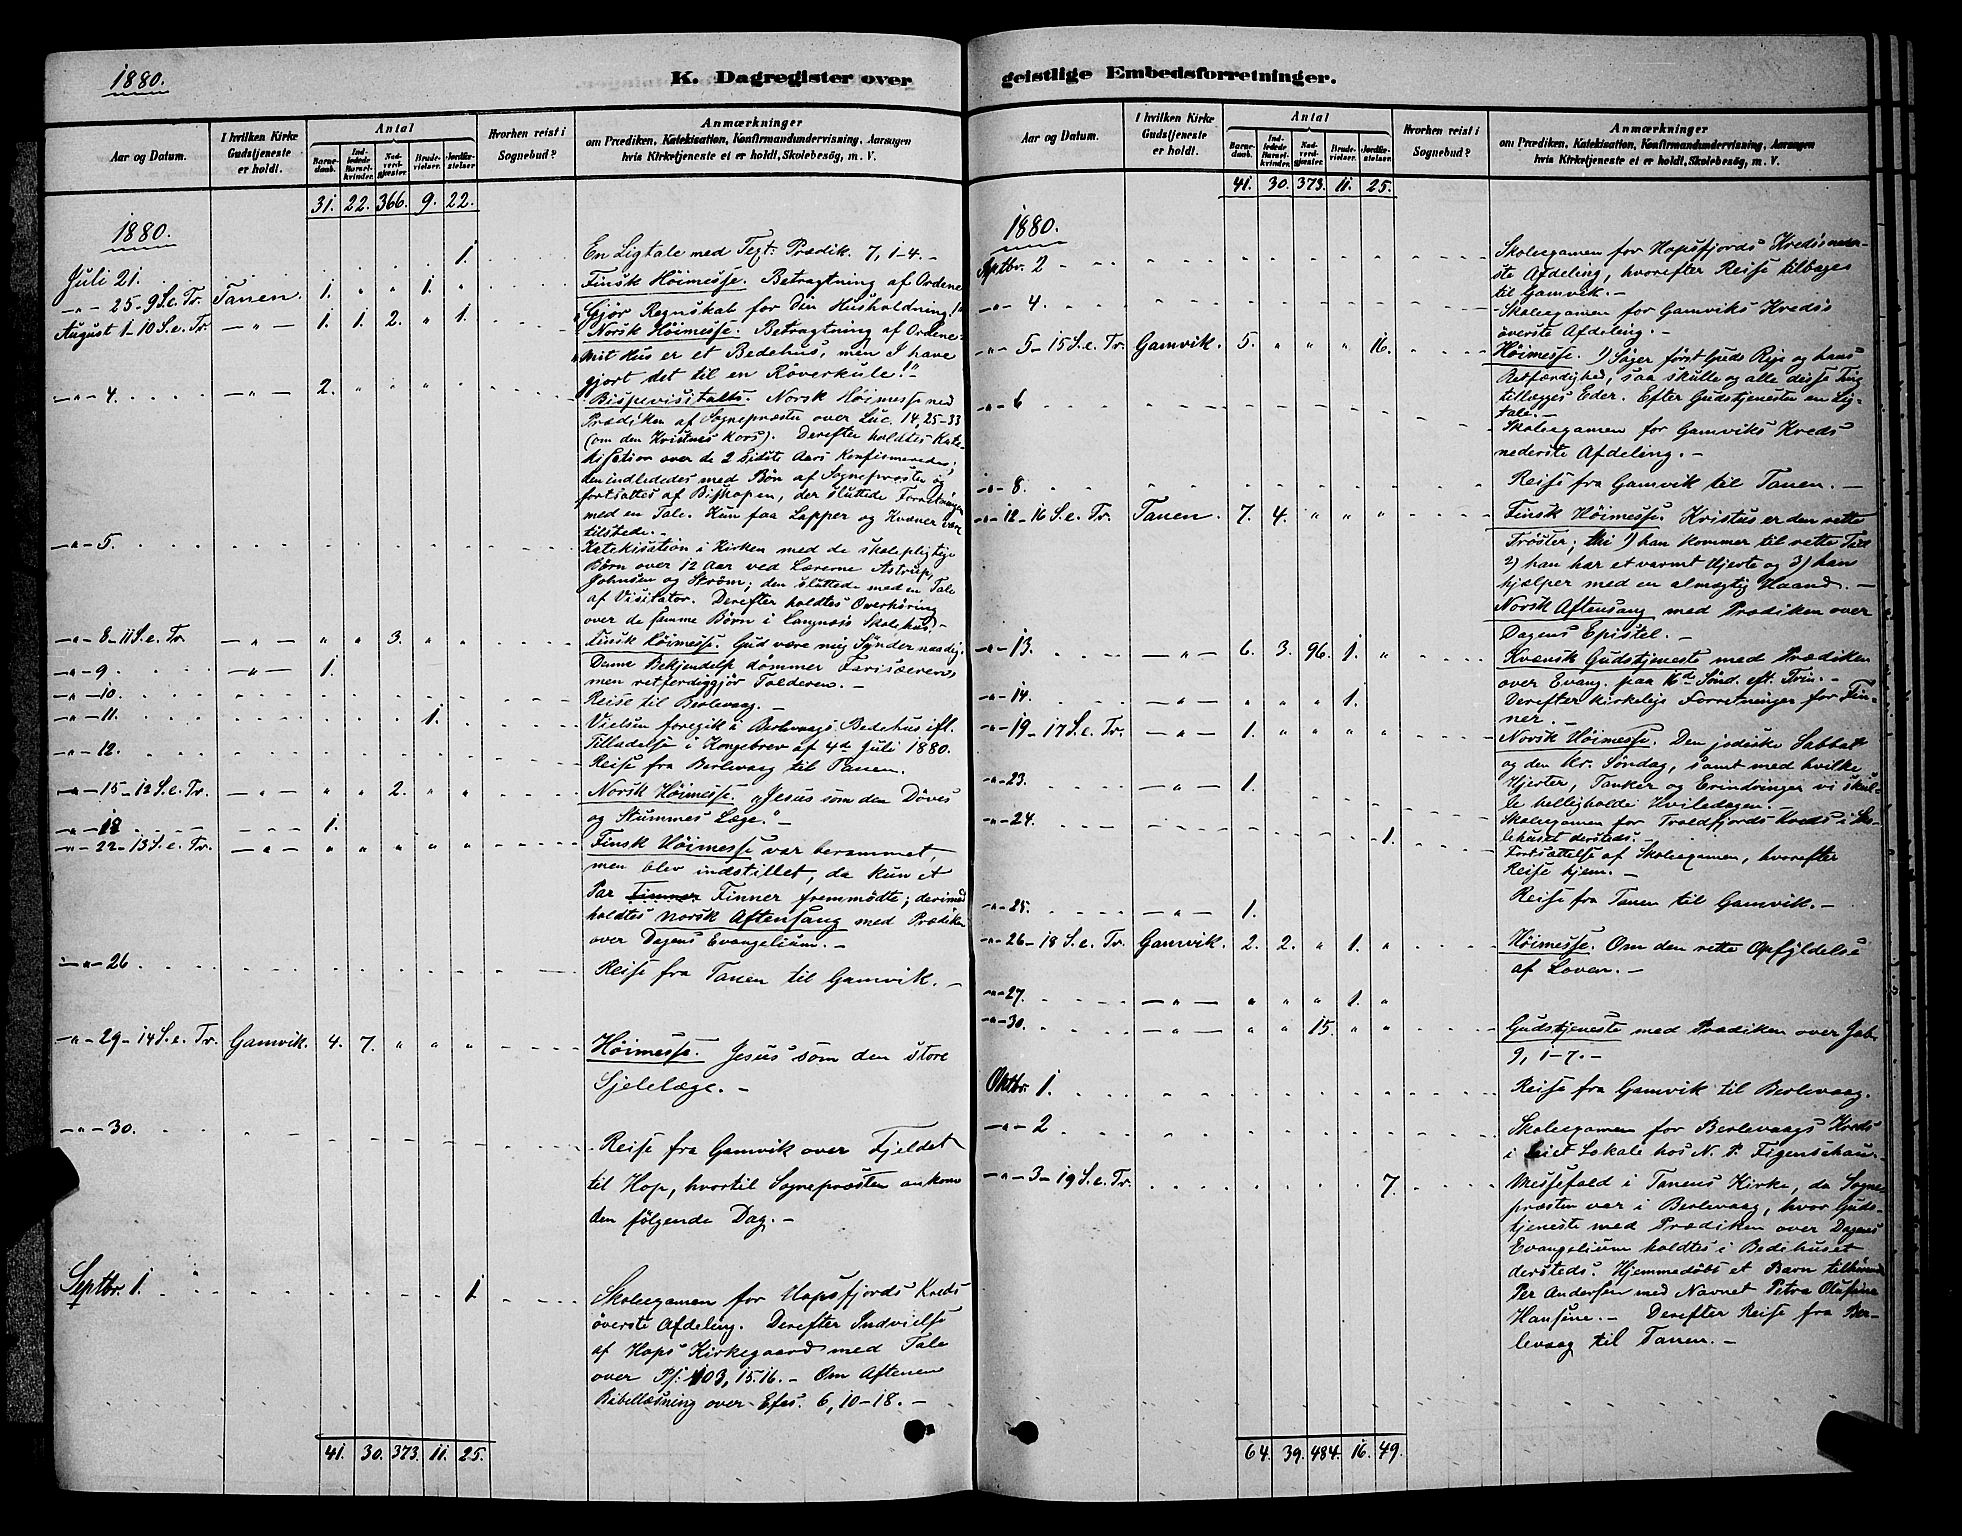 1880.
K. Dagregister over
Aar og Datum.
I hvilken Kirke Gudstjeneste er holdt.
Antal
Barne-daab.
Ind-ledede Barsel-kvinder.
Nad-verd-gjæster.
Brude-vielser.
Jordfæs-stelser.
Hvorhen reist i Sognebud?
Anmærkninger
om Prædiken, Katekisation, Konfirmandundervisning, Aarsagen
hvis Kirketjeneste ei er holdt, Skolebesøg, m. V.
31. 22. 366. 9. 22.
1880.
Juli 21. 1. En Ligtale med Text: Prædik. 7, 1-4. -
-"- 25-9 S. e. Tr. Tanen. 1. " " 1. " Finsk Høimesse. Betragtning af Ordene
"Gjør Regnskab for din Husholdning!"
August 1-10 S. e. Tr. -"- 1. 1. 2. " 1. Norsk Høimesse. Betragtning af Ordene
"Mit Hus er et Bedehus, men I have
gjort det til en Røverkule!"
-"- 4. -"- 2. " " " " Bispevisitats. Norsk Høimesse med
Prædiken af Sognepræsten over Luc. 14, 25-33
(om den Kristnes Kors). Derefter holdtes Kate-
kisation over de 2 sidste Aars Konfirmerede;
den indlededes med Bøn af Sognepræsten og
fortsattes af Biskopen, der sluttede Forretningen
med en Tale. Kun faa Lapper og Kvæner vare
tilstede. -
-"- 5. Katekisation i Kirken med de skolepligtige
Børn over 12 Aar ved Lærerne Astrup,
Johnsen og Strøm; den sluttede med en Tale
af Visitator. Derefter holdtes Overhøring
over de samme Børn i Langnæs Skolehus. -
-"- 8-11 S. e. Tr. -"- " " 3. " " Finsk Høimesse. Gud være mig Synder naadig.
Denne Bekjendelse dømmer Farisæeren,
men retferdiggjør Tolderen. -
-"- 9 -"- 1.
-"- 10. Reise til Berlevaag. -
-"- 11. 1. Vielsen foregik i Berlevaags Bedehus ifl.
Tilladelse i Kongebrev af 4de Juli 1880.
-"- 12. Reise fra Berlevaag til Tanen.
-"- 15-12 S. e. Tr. -"- " " 2. " " Norsk Høimesse. "Jesus som den Døves
og Stummes Læge." -
-"- 18 1.
-"- 22-13 S. e. Tr. -"- " " " " " Finsk Høimesse var berammet,
men blev indstillet, da kun et
Par Finner Finner fremmødte; derimod
holdtes norsk Aftensang med Prædiken
over Dagens Evangelium. -
-"- 26. Reise fra Tanen til Gamvik. -
-"- 29-14 S. e. Tr. Gamvik. 4. 7. " " " Høimesse. Jesus som den store
Sjelelæge. -
-"- 30. Reise fra Gamvik over Fjeldet
til Hop, hvortil Sognepræsten ankom
den følgende Dag. -
Septbr. 1. 1. Skoleexamen for Hopsfjords Kreds
øverste Afdeling. Derefter Indvielse
af Hops Kirkegaard med Tale
over Ps. 103, 15.16. - Om Aftenen
Bibellæsning over Efes. 6, 10-18. -
41. 30. 373. 11. 25.
geistlige Embedsforretninger.
Aar og Datum.
I hvilken Kirke Gudstjeneste er holdt.
Antal
Barne-daab.
Ind-ledede Barsel-kvinder.
Nad-verd-gjæster.
Brude-vielser.
Jordfæs-stelser.
Hvorhen reist i Sognebud?
Anmærkninger
om Prædiken, Katekisation, Konfirmandundervisning, Aarsagen
hvis Kirketjeneste ei er holdt, Skolebesøg, m. V.
41. 30. 373. 11. 25.
1880.
Septbr. 2 Skoleexamen for Hopsfjords Kreds neder-
ste Afdeling, hvorefter Reise tilbages
til Gamvik. -
-"- 4. Skoleexamen for Gamviks Kreds's
øverste Afdeling. -
-"- 5-15 S. e. Tr. Gamvik. 5. " " " 16. Høimesse. 1) Søger først Guds Rige og hans
Retfærdighed, saa skulle og alle disse Ting
tillægges Eder. Efter Gudstjenesten en Lig-
tale. -
-"- 6 Skoleexamen for Gamviks Kreds
nederste Afdeling. -
-"- 8. Reise fra Gamvik til Tanen. -
-"- 12-16 S. e. Tr. Tanen. 7. 4. " " " Finsk Høimesse. Kristus er den rette
Trøster; thi 1) han kommer til rette Tid
2) han har et varmt Hjerte og 3) han
hjælper med en almægtig Haand. -
Norsk Aftensang med Prædiken over
Dagens Epistel. -
-"- 13. -"- 6. 3. 96. 1. " Kvænsk Gudstjeneste med Prædiken
over Evang. paa 16de Sønd. eft. Trin. -
-"- 14. -"- " " " 1. Derefter kirkelige Forretninger for Fin-
ner. -
-"- 19-17 S. e. Tr. -"- 1. " " " " Norsk Høimesse. Den jødiske Sabbat
og den kr. Søndag, samt med hvilke
Hjerter, Tanker og Erindringer vi skul-
le helligholde Hviledagen. -
-"- 23. -"- 1.
-"- 24. 1. Skoleexamen for Troldfjords Kreds i Sko-
lehuset dersteds. -
Fortsættelse af Skoleexamen, hvorefter
Reise hjem. -
-"- 25. -"- 1. Reise fra Tanen til Gamvik. -
-"- 26-18 S. e. Tr. Gamvik. 2. 2. " 1. " Høimesse. Om den rette Opfyldelse
af Loven. -
-"- 27. -"- " " " 1. "
-"- 30. -"- " " 15. " " Gudstjeneste med Prædiken over Joh.
9, 1-7. -
Oktbr. 1. Reise fra Gamvik til Berlevaag.
-"- 2 Skoleexamen for Berlevaags Kreds
i leiet Lokale hos N. P. Figenschau. -
-"- 3-19 S. e. Tr. 7. Messefald i Tanens Kirke, da Sogne-
præsten var i Berlevaag, hvor Guds-
tjeneste med Prædiken over Dagens
Evangelium holdtes i Bedehuset
dersteds. Hjemmedøbt et Barn tilhørende
Per Andersen med Navnet Petra Olufine
Hansine. - Derefter Reise fra Ber-
levaag til Tanen. -
64. 39. 484. 16. 49.